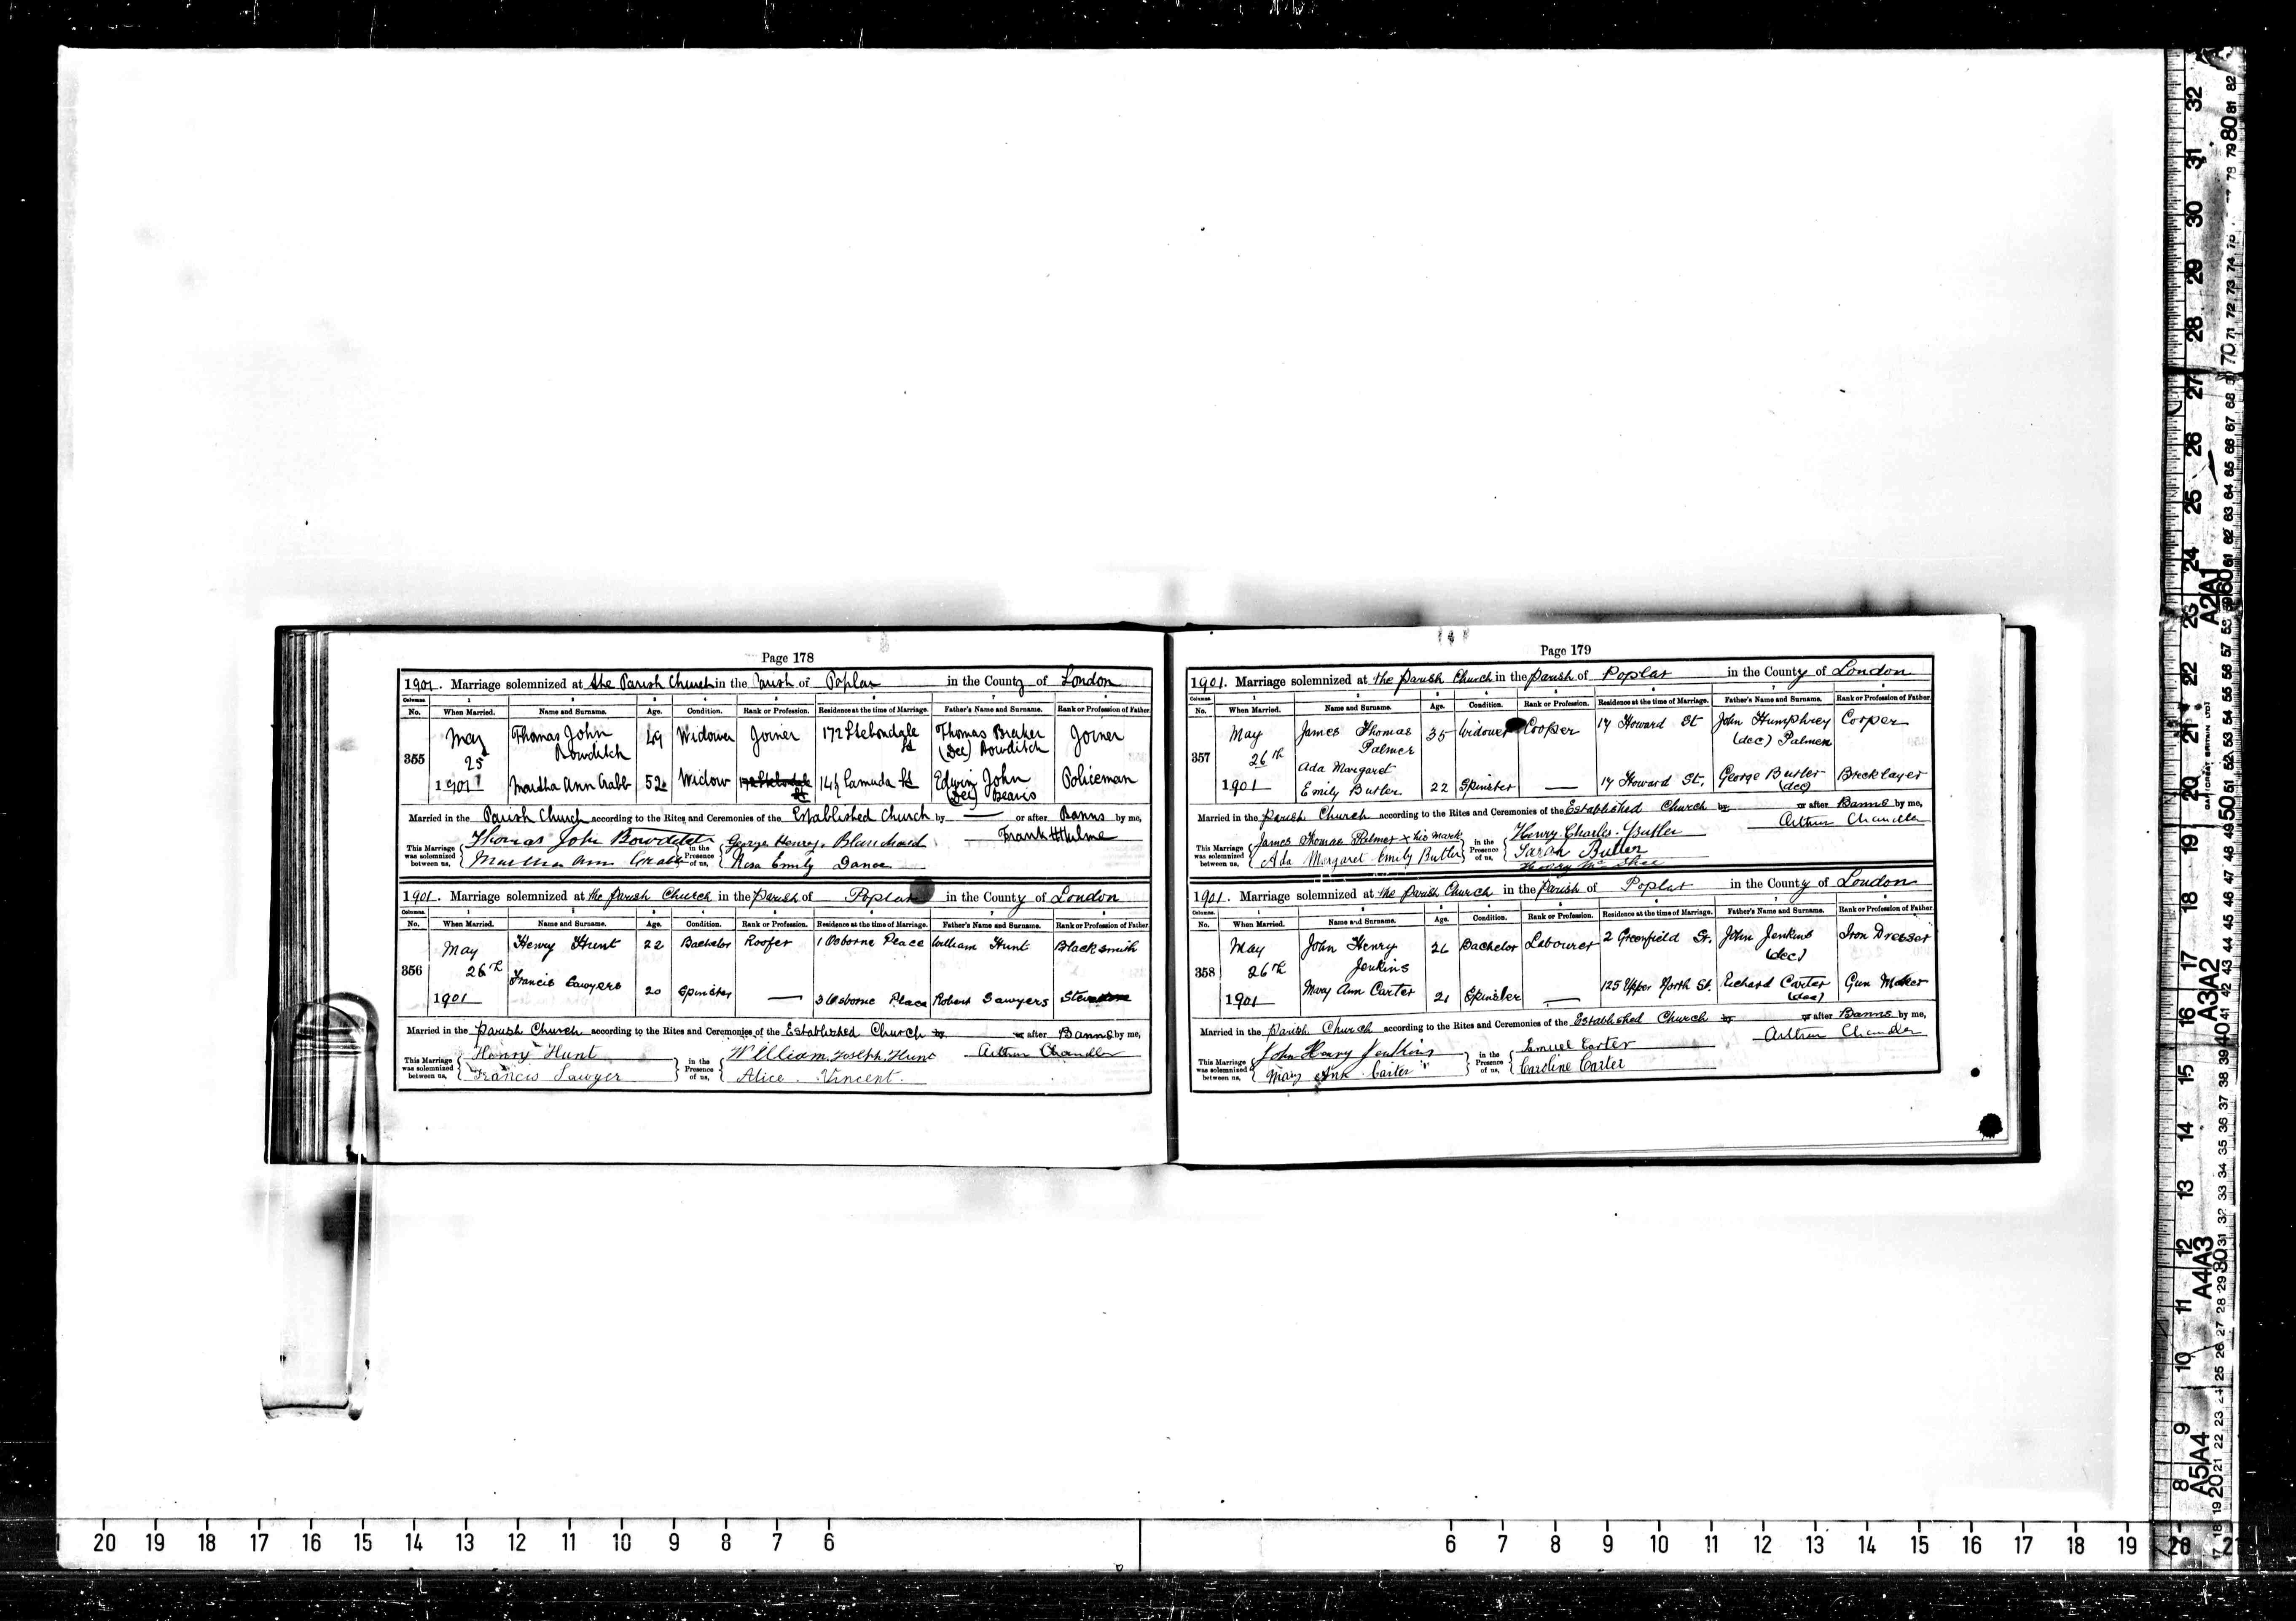 Page 178
1901. Marriage solemnized at the Parish Church in the Parish of Poplar in the County of London
Columns. 1 2 3 4 5 6 7 8
No. When Married. Name and Surname. Age. Condition. Rank or Profession. Residence at the time of Marriage. Father's Name and Surname. Rank or Profession of Father.
355 May 25 1901 Thomas John Bowditch 49 Widower Joiner 172 Stebondale St Thomas Braher (Dec) Bowditch Joiner
Martha Ann Crabb 52 Widow Lamuda St Edwin John (Dec) Beavis Policeman
Married in the Parish Church according to the Rites and Ceremonies of the Established Church by — or after Banns by me,
This Marriage was solemnized between us, Thomas John Bowditch in the Presence of us, George Henry Blanchard Frank H Hulme
Martha Ann Crabb Rosa Emily Dance
1901. Marriage solemnized at the Parish Church in the Parish of Poplar in the County of London
Columns. 1 2 3 4 5 6 7 8
No. When Married. Name and Surname. Age. Condition. Rank or Profession. Residence at the time of Marriage. Father's Name and Surname. Rank or Profession of Father.
356 May 26th 1901 Henry Hunt 22 Bachelor Roofer 1 Osborne Place William Hunt Blacksmith
Francis Sawyers 20 Spinster — 3 Osborne Place Robert Sawyers
Married in the Parish Church according to the Rites and Ceremonies of the Established Church by or after Banns by me,
This Marriage was solemnized between us, Henry Hunt in the Presence of us, William Joseph Hunt Arthur Chandler
Francis Sawyer Alice Vincent.
Page 179
1901. Marriage solemnized at the Parish Church in the Parish of Poplar in the County of London
Columns. 1 2 3 4 5 6 7 8
No. When Married. Name and Surname. Age. Condition. Rank or Profession. Residence at the time of Marriage. Father's Name and Surname. Rank or Profession of Father.
357 May 26th 1901 James Thomas Palmer 35 Widower Cooper 17 Howard St John Humphrey (dec) Palmer Cooper
Ada Margaret Emily Butler 22 Spinster — 17 Howard St. George Butler (dec) Bricklayer
Married in the Parish Church according to the Rites and Ceremonies of the Established Church by or after Banns by me,
This Marriage was solemnized between us, James Thomas Palmer x his mark in the Presence of us, Henry Charles Butler Arthur Chandler
Ada Margaret Emily Butler Sarah Butler
1901. Marriage solemnized at the Parish Church in the Parish of Poplar in the County of London
Columns. 1 2 3 4 5 6 7 8
No. When Married. Name and Surname. Age. Condition. Rank or Profession. Residence at the time of Marriage. Father's Name and Surname. Rank or Profession of Father.
358 May 26th 1901 John Henry Jenkins 26 Bachelor Labourer 2 Greenfield St. John Jenkins (dec) Iron Dresser
Mary Ann Carter 21 Spinster — 125 Upper North St. Richard Carter (dec) Gun Maker
Married in the Parish Church according to the Rites and Ceremonies of the Established Church by or after Banns by me,
This Marriage was solemnized between us, John Henry Jenkins in the Presence of us, Emuel Carter Arthur Chandler
Mary Ann Carter Caroline Carter
20 19 18 17 16 15 14 13 12 11 10 9 8 7 6 6 7 8 9 10 11 12 13 14 15 16 17 18 19 20
A2 A1
A3 A2
A4 A3
A5 A4